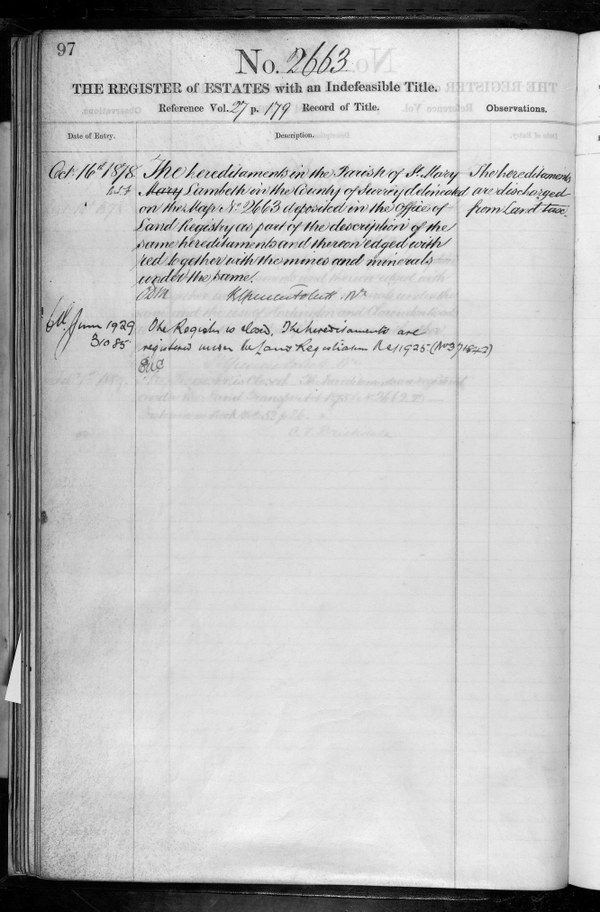 97
No. 2663
THE REGISTER of ESTATES with an Indefeasible Title.
Reference Vol. 27 p. 179 Record of Title.
Observations.
Date of Entry.
Description.
Oct 16th 1878
The hereditaments in the Parish of St. Mary
Mary Lambeth in the County of Surrey delineated
on the Map No. 2663 deposited in the Office of
Land Registry as part of the description of the
same hereditaments and thereon edged with
red together with the mines and minerals
under the same
The hereditaments
are discharged
from Land tax.
6th June 1929
31085
The Register is closed. The hereditaments are
registered under the Land Registration Act 1925 (No 371842)